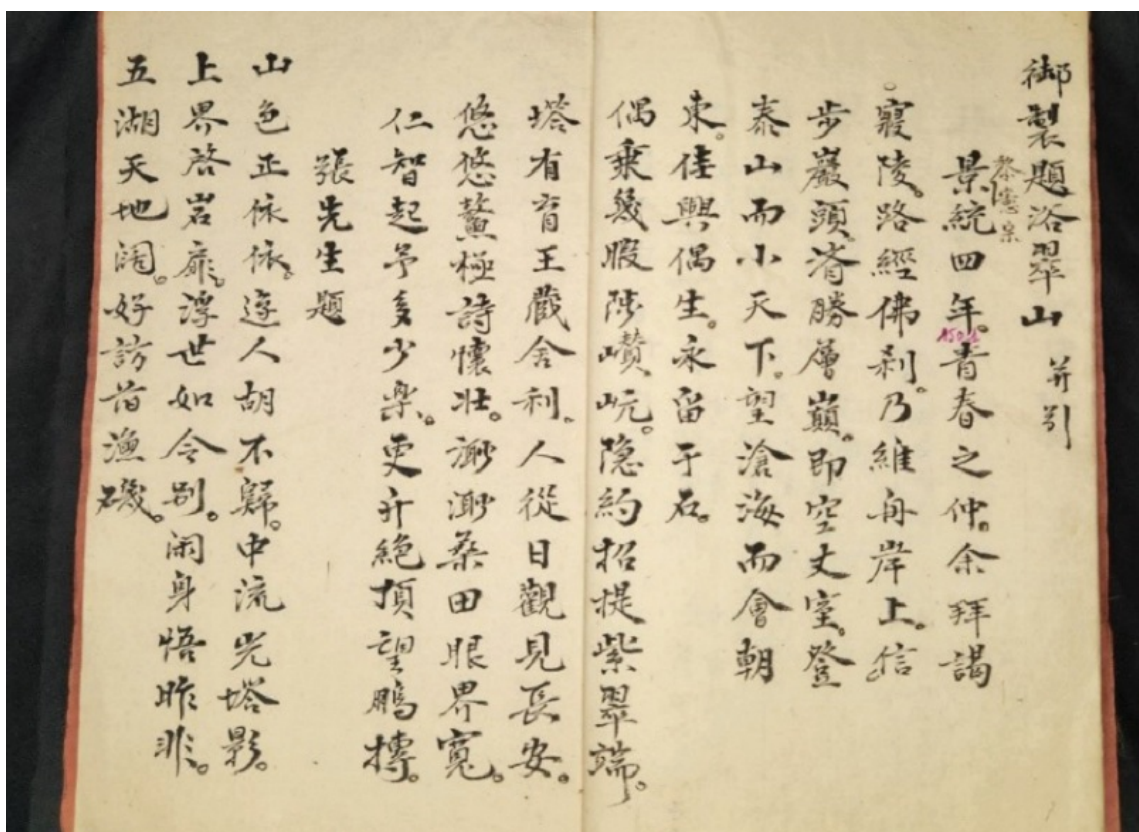 御製題浴翠山 并引
黎憲宗
景統四年。青春之仲。余拜謁
1501
寢陵。路經佛刹。乃維舟岸上。信
步巖頭。濟勝層巔。即空丈室。登
泰山而小天下。望滄海而會朝
東。佳興偶生。永留于石。
偶乘幾暇陟巑岏。隐約招提紫翠端。
塔有育王藏舍利。人從日觀見長安。
悠悠鰲極詩懷壯。渺渺桑田眼界寬。
仁智起予多少楽。更升絶頂望鵬摶。
張先生題
山色正依依。遊人胡不歸。中流光塔影。
上界啓岩扉。浮世如今别。闲身悟昨非。
五湖天地阔。好訪漁磯。